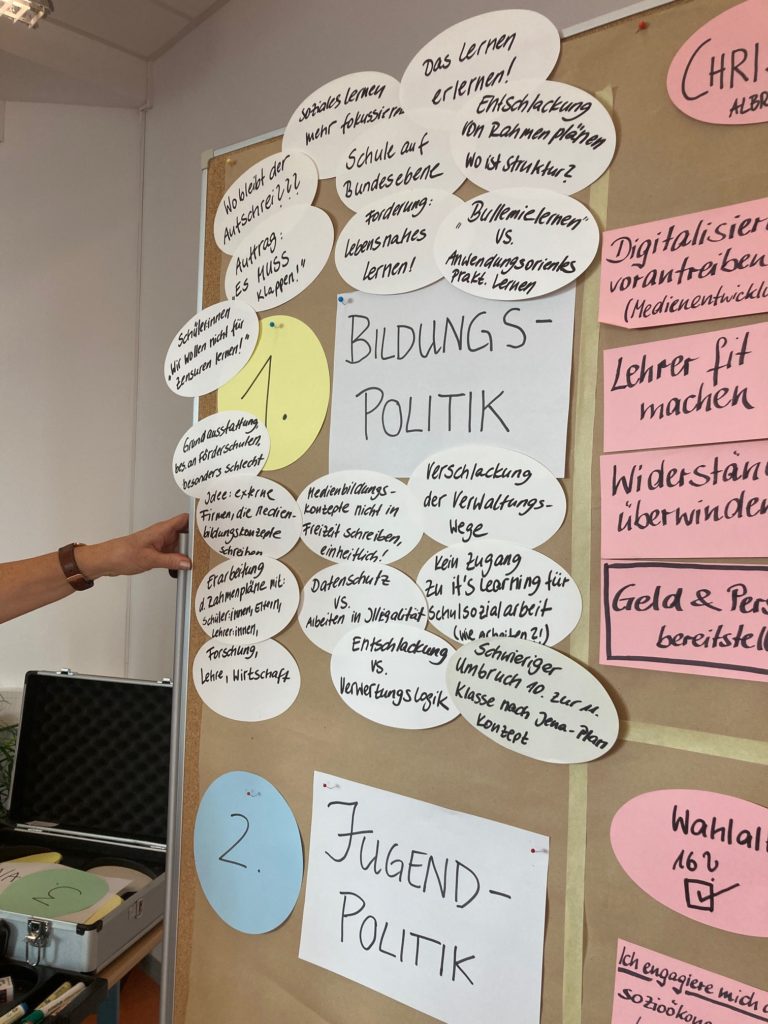 Das Lernen
erlernen!
Soziales Lernen
mehr fokussieren
Entschlackung
von Rahmenplänen
Wo ist Struktur?
Schule auf
Bundesebene
Wo bleibt der
Aufschrei???
Forderung:
Lebensnahes
Lernen!
„Bullemielernen"
vs.
Anwendungsorientes
Prakt. Lernen
Auftrag:
"ES MUSS
klappen!"
Schüler:innen
"Wir wollen nicht für
Zensuren lernen!"
1.
BILDUNGS-
POLITIK
Grundausstattung
bes. an Förderschulen
besonders schlecht
Idee: externe
Firmen, die Medien-
bildungskonzepte
schreiben
Medienbildungs-
konzepte nicht in
Freizeit schreiben,
einheitlich!
Verschlackung
der Verwaltungs-
Wege
Erarbeitung
d. Rahmenpläne mit:
Schüler:innen, Eltern,
Lehrer:innen,
Forschung,
Lehre, Wirtschaft
Datenschutz
vs.
Arbeiten in Illegalität
Kein Zugang
zu it's Learning für
Schulsozialarbeit
(wie arbeiten?!)
Entschlackung
vs.
Verwertungslogik
Schwieriger
Umbruch 10. zur 11.
Klasse nach Jena-Plan
Konzept
2.
JUGEND-
POLITIK
CHRI
ALBR
Digitalisier
vorantreiben
(Medienentwicklu
Lehrer fit
machen
Widerstän
überwinden
Geld & Pers
bereitstell
Wahlal
16?
Ich engagiere mich
sozioökon